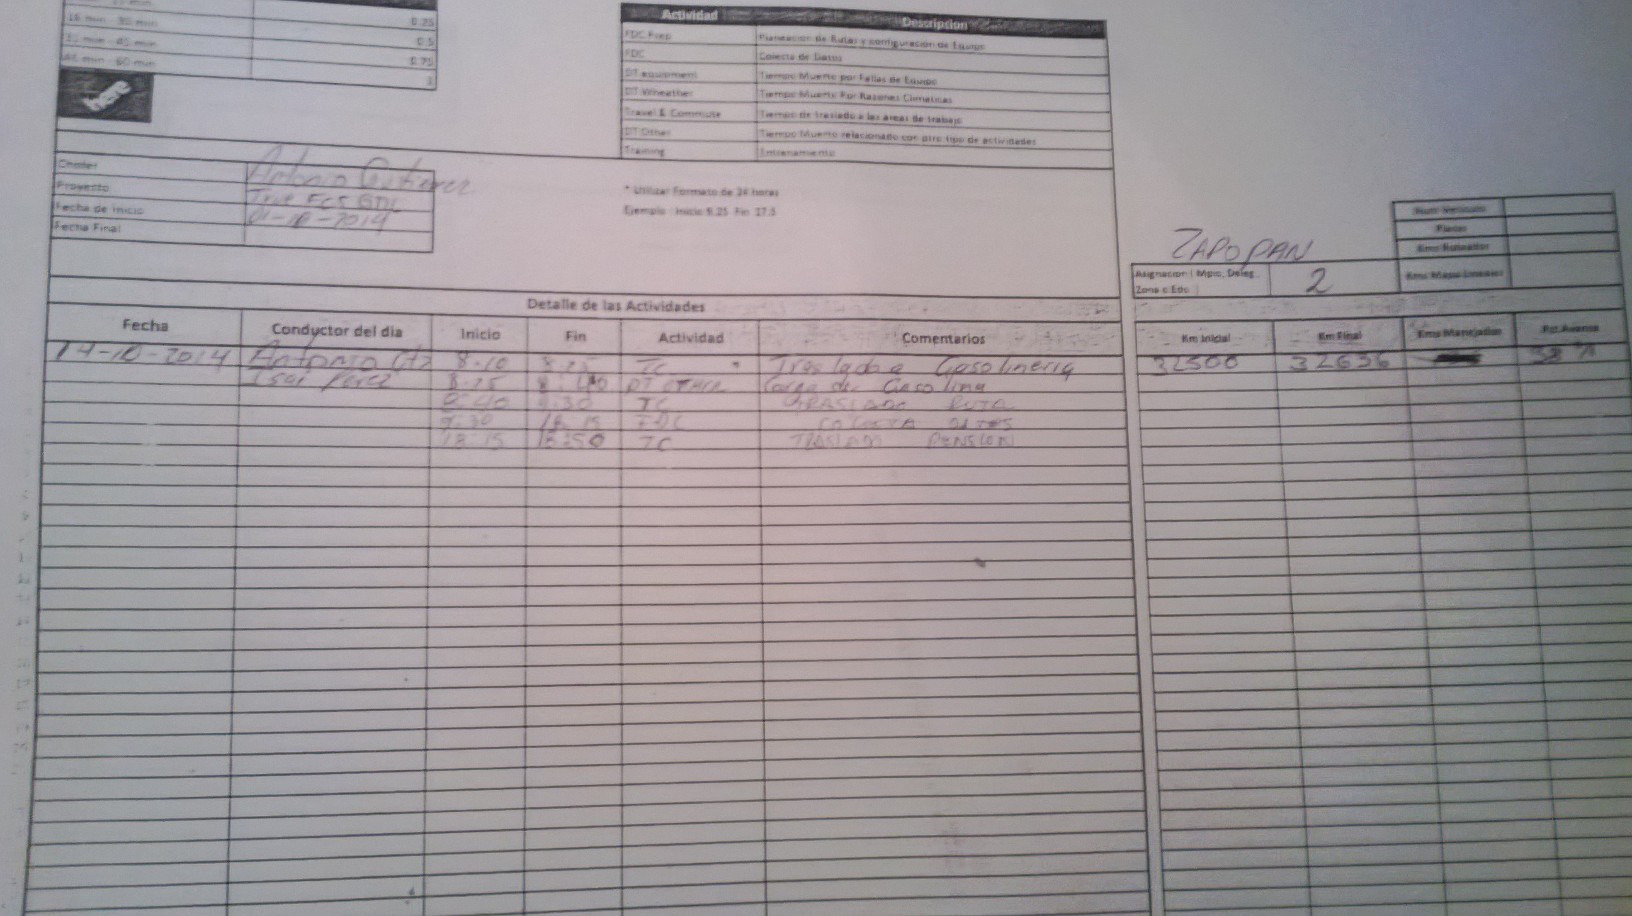 16 min - 30 min 0.25
31 min - 45 min 0.5
46 min - 60 min 0.75
1
here
Actividad Descripcion
FDC Prep Planeacion de Rutas y configuracion de Equipo
FDC Colecta de Datos
DT equipment Tiempo Muerto por Fallas de Equipo
DT Wheather Tiempo Muerto Por Razones Climaticas
Travel & Commute Tiempo de traslado a las areas de trabajo
DT Other Tiempo Muerto relacionado con otro tipo de actividades
Training Entrenamiento
Chofer Antonio Gutierrez
Proyecto True FCS GDL
Fecha de Inicio 01-10-2014
Fecha Final
* Utilizar Formato de 24 horas
Ejemplo : Inicio 9.25 Fin 17.5
ZAPOPAN
Placas
Asignacion ( Mpio, Deleg, Zona o Edo ) 2
Detalle de las Actividades
Fecha Conductor del dia Inicio Fin Actividad Comentarios Km Inicial Km Final Kms Manejados Pct Avance
14-10-2014 Antonio Gtz 8:10 8:25 TC Traslado a Gasolineria 32500 32636 38 %
Isai Perez 8:25 8:40 DT OTHER Carga de Gasolina
8:40 9:30 TC TRASLADO RUTA
9:30 18:15 FDC COLECTA DATOS
18:15 18:50 TC TRASLADO PENSION